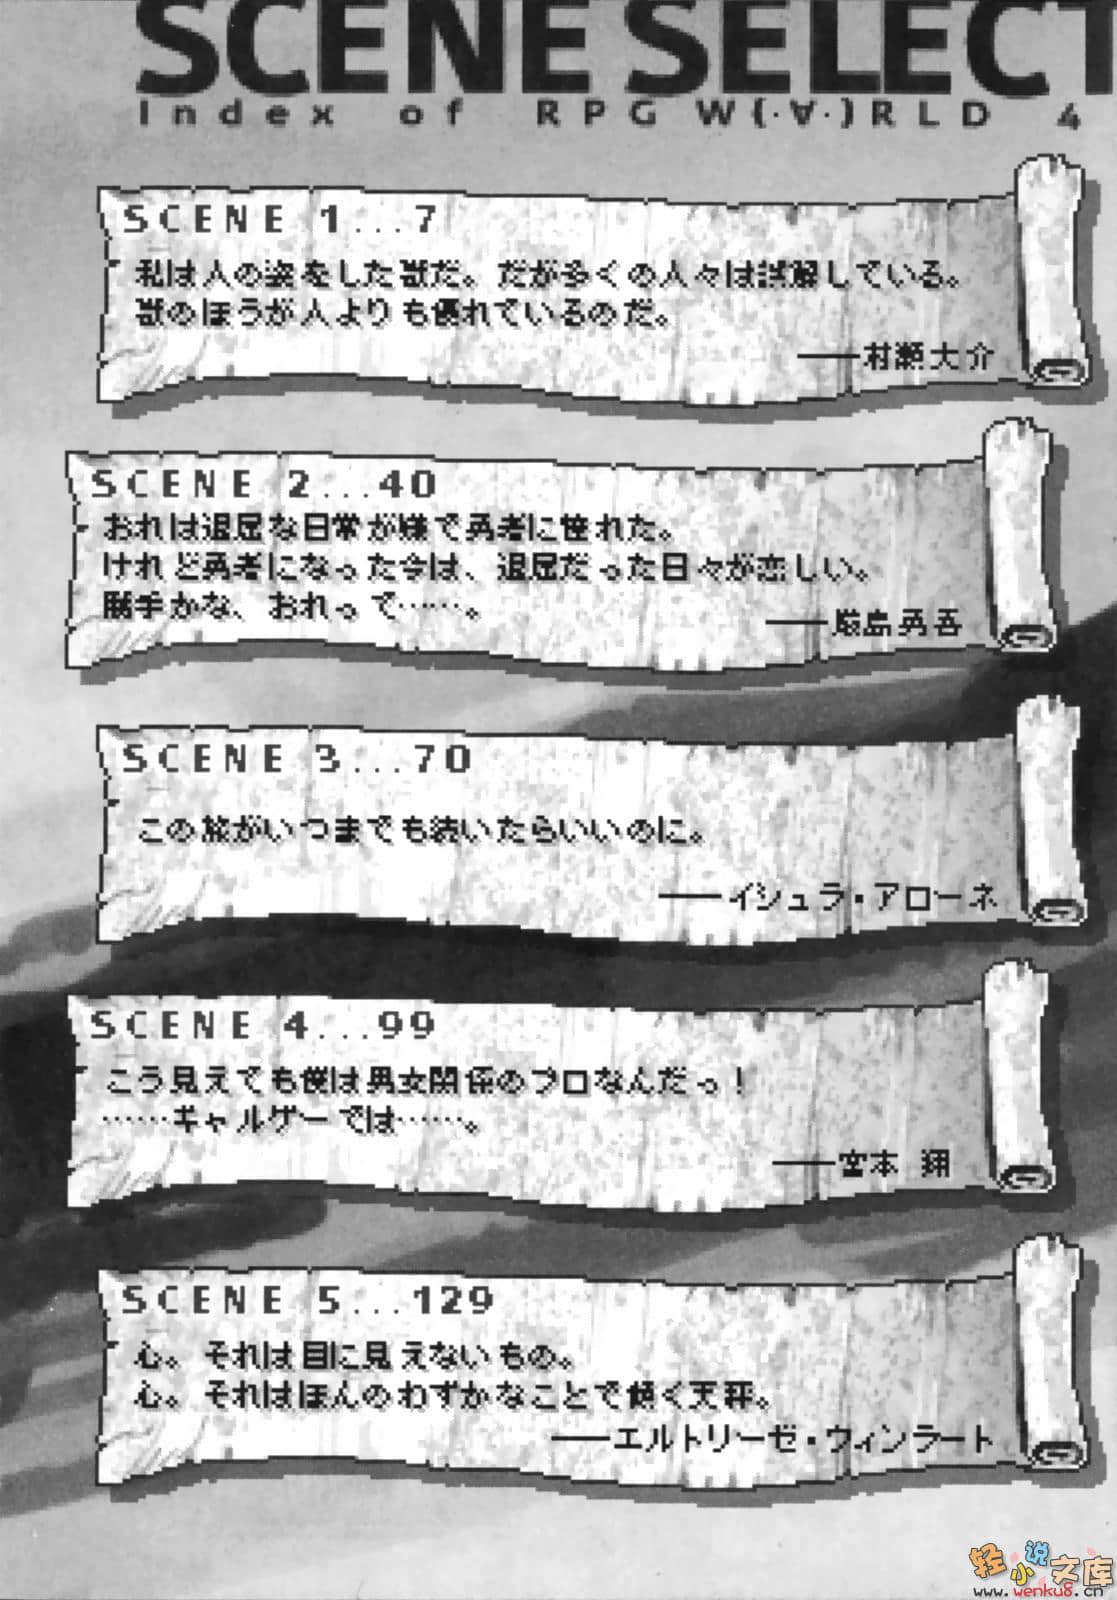 SCENE SELECT
Index of RPG W(・∀・)RLD 4
SCENE 1...7
私は人の姿をした獣だ。だが多くの人々は誤解している。
獣のほうが人よりも優れているのだ。
――村瀬大介
SCENE 2...40
おれは退屈な日常が嫌で勇者に憧れた。
けれど勇者になった今は、退屈だった日々が恋しい。
勝手かな、おれって……。
――厳島勇吾
SCENE 3...70
この旅がいつまでも続いたらいいのに。
――イシュラ・アローネ
SCENE 4...99
こう見えても僕は男女関係のプロなんだっ！
……ギャルゲーでは……。
――宮本 翔
SCENE 5...129
心。それは目に見えないもの。
心。それはほんのわずかなことで傾く天秤。
――エルトリーゼ・ウィンラート
轻小说文库
www.wenku8.cn